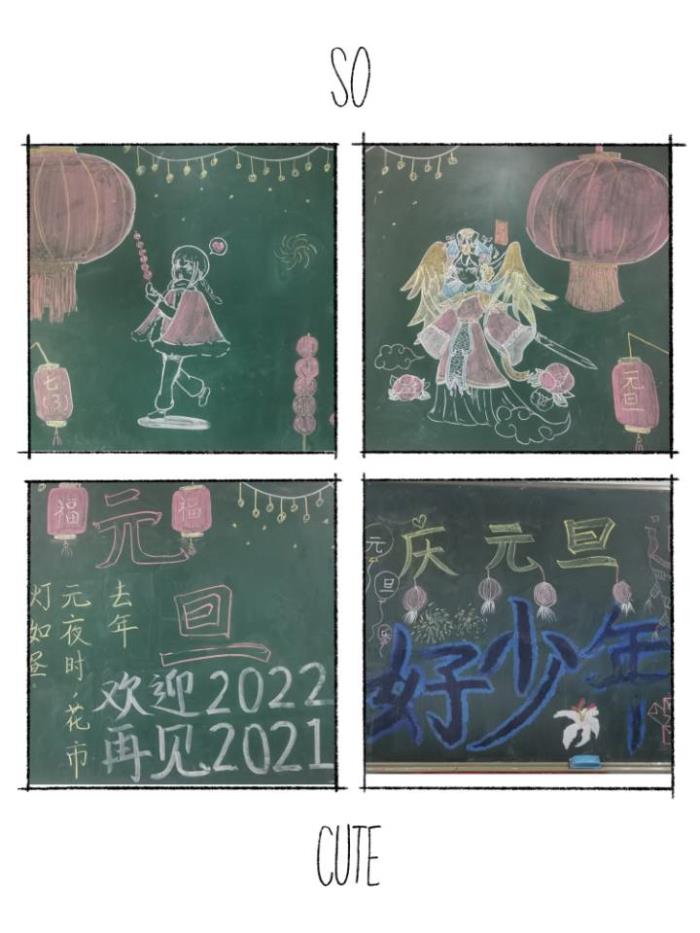 SO
七(3)
元旦
福
福
元旦
去年
元夜时,花市
灯如昼
欢迎2022
再见2021
庆元旦
元
旦
乐
好少年
CUTE